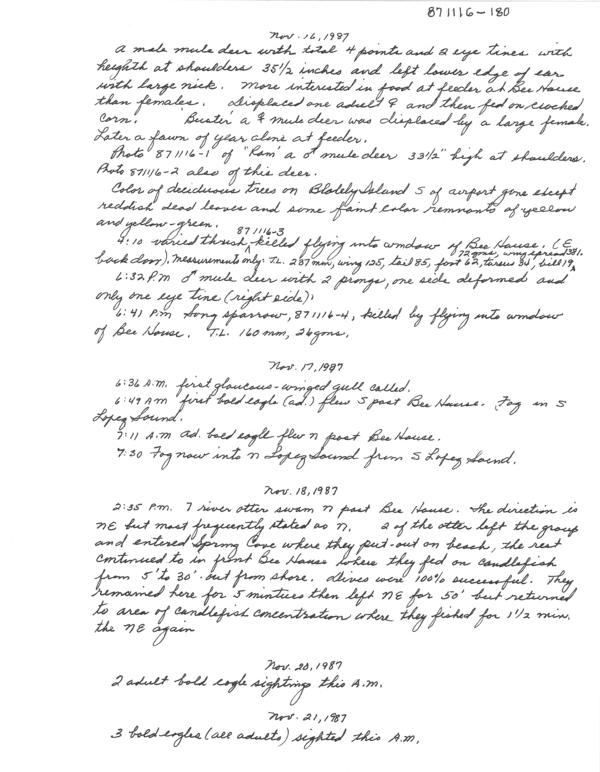 871116-180
Nov. 16, 1987
A male mule deer with total 4 points and 2 eye tines with
heighth at shoulders 35 1/2 inches and left lower edge of ear
with large nick. More interested in food at feeder at Bee House
than females. Displaced one adult ♀ and then fed on cracked
corn. 'Buster' a ♀ mule deer was displaced by a large female.
Later a fawn of year alone at feeder.
Photo 871116-1 of "Ram' a ♂ mule deer 33 1/2" high at shoulders.
Photo 871116-2 also of this deer.
Color of deciduous trees on Blakely Island S of airport gone except
reddish dead leaves and some faint color remnants of yellow
and yellow-green.
871116-3
4:10 varied thrush, killed flying into window of Bee House. (E
72 gms, wing spread 381.
back door), measurements only: T.L. 237 mm, wing 125, tail 85, foot 62, tarsus 34, bill 19
6:32 P.M ♂ mule deer with 2 prongs, one side deformed and
only one eye tine (right side).
6:41 P.M Song sparrow, 871116-4, killed by flying into window
of Bee House. T.L. 160 mm, 26 gms.
Nov. 17, 1987
6:36 A.M. first glaucous-winged gull called.
6:49 AM first bald eagle (ad.) flew S past Bee House. Fog in S
Lopez Sound.
7:11 A.M ad. bald eagle flew N past Bee House.
7:30 Fog now into N Lopez Sound from S Lopez Sound.
Nov. 18, 1987
2:35 P.M. 7 river otter swam N past Bee House. The direction is
NE but most frequently stated as N. 2 of the otter left the group
and entered Spring Cove where they put-out on beach, the rest
continued to in front Bee House where they fed on candlefish
from 5' to 30' out from shore. Dives were 100% successful. They
remained here for 5 mintues then left NE for 50' but returned
to area of candlefish concentration where they fished for 1 1/2 min.
the NE again
Nov. 20, 1987
2 adult bald eagle sightings this A.M.
Nov. 21, 1987
3 bald eagles (all adults) sighted this A.M.